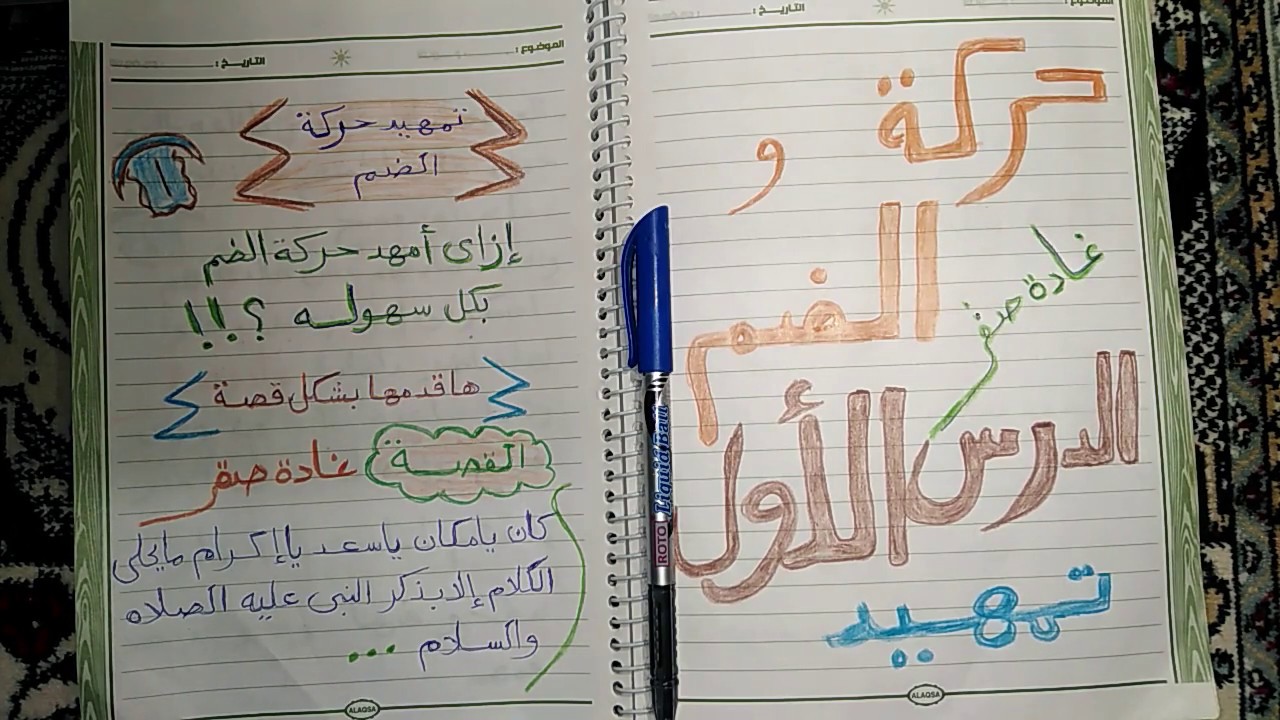 الموضوع :
التاريخ :
حركة
و
الضم
غادة صقر
الدرس الأول
تمهيد
ALAQSA
الموضوع :
التاريخ :
تمهيد حركة
الضم
إزاى أمهد حركة الضم
بكل سهوله ؟!!
هاقدمها بشكل قصة
القصة
غادة صقر
كان يامكان ياسعد ياإكرام مايحلى
الكلام إلا بذكر النبى عليه الصلاه
والسلام ...
ALAQSA
ROTO Liquid Ball